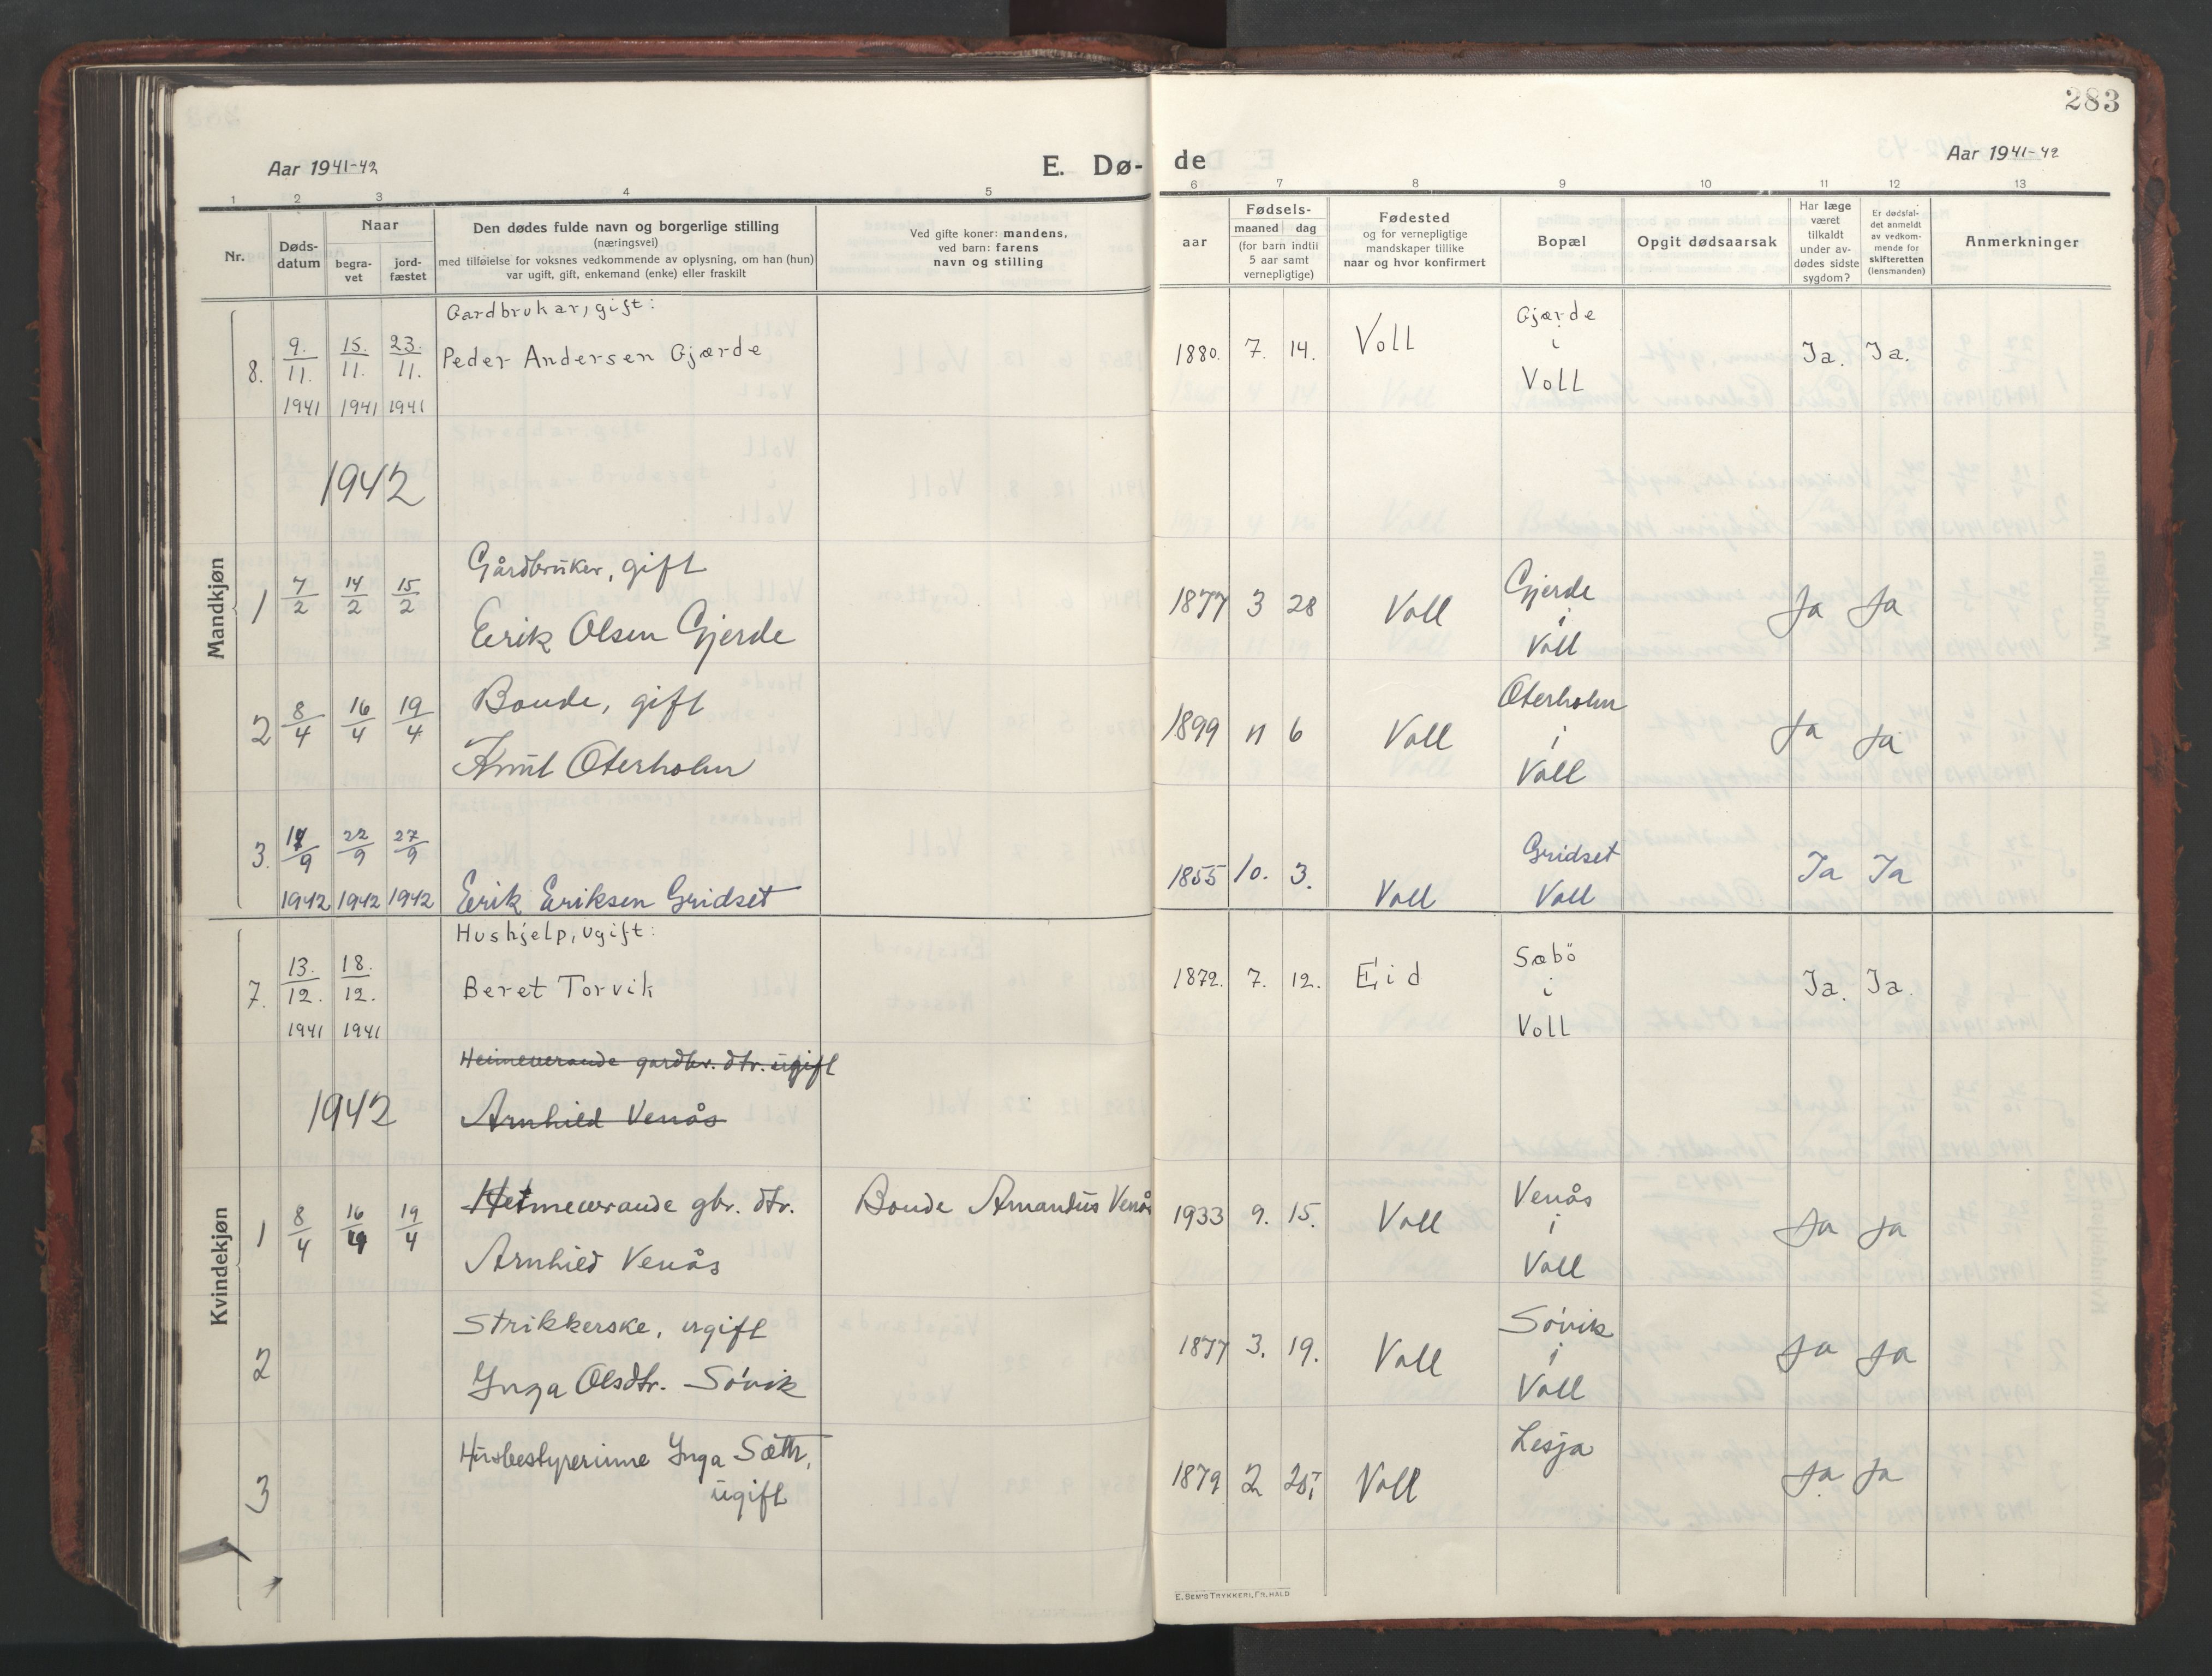 283
Aar 1941-42
E. Dø-
de
Aar 1941-42
1 2 3 4 5 6 7 8 9 10 11 12 13
Nr.
Døds-
datum
Naar
begra-
vet
jord-
fæstet
Den dødes fulde navn og borgerlige stilling
(næringsvei)
med tilføielse for voksnes vedkommende av oplysning, om han (hun)
var ugift, gift, enkemand (enke) eller fraskilt
Ved gifte koner: mandens,
ved barn: farens
navn og stilling
aar
Fødsels-
maaned dag
(for barn indtil
5 aar samt
vernepligtige)
Fødested
og for vernepligtige
mandskaper tillike
naar og hvor konfirmert
Bopæl
Opgit dødsaarsak
Har læge
været
tilkaldt
under av-
dødes sidste
sygdom?
Er dødsfal-
det anmeldt
av vedkom-
mende for
skifteretten
(lensmanden)
Anmerkninger
Mandkjøn
Gardbrukar, gift:
8. 9./11. 15./11. 23./11. Peder Andersen Gjærde 1880. 7. 14. Voll Gjærde i Voll Ja. Ja.
1941 1941 1941
1942
Gårdbruker, gift
1 7/2 14/2 15/2 Eerik Olsen Gjerde 1877 3 28 Voll Gjerde i Voll Ja Ja
Bonde, gift
2 8/4 16/4 19/4 Knut Oterholm 1899 11 6 Voll Oterholm i Voll Ja Ja
3. 17/9 22/9 27/9
1942 1942 1942 Erik Eriksen Gridset 1855 10. 3. Voll Gridset Voll Ja Ja
Kvindekjøn
Hushjelp, ugift:
7. 13./12. 18./12. Beret Torvik 1872. 7. 12. Eid Sæbö i Voll Ja. Ja.
1941 1941
Heimeverande gardbr. dtr. ugift
1942 Arnhild Venås
1 8/4 16/4 19/4 Heimeverande gbr. dtr. Bonde Amandus Venås 1933 9. 15. Voll Venås i Voll Ja Ja
Arnhild Venås
Strikkerske, ugift
2 Inga Olsdtr. Sövik 1877 3. 19. Voll Sövik i Voll Ja Ja
3 Husbestyrerinne Inga Sæthr, 1879 2 25. Voll Lesja Ja Ja
ugift
E. SEM'S TRYKKERI, FR. HALD